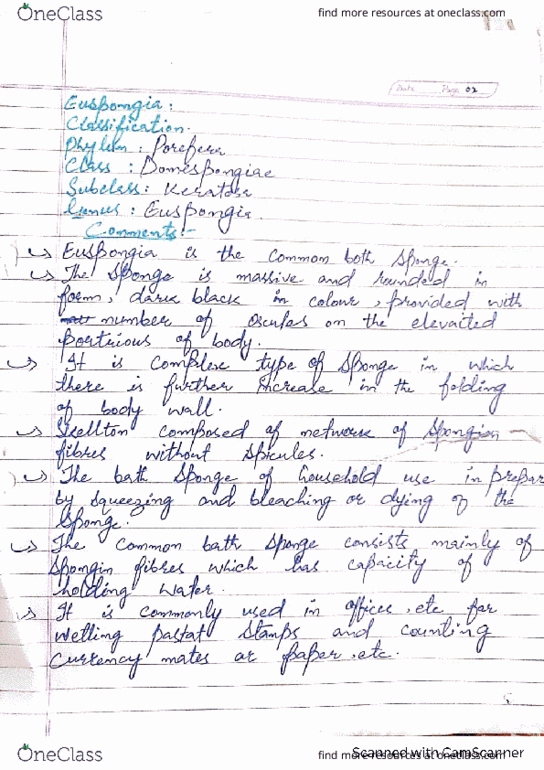 OneClass
find more resources at oneclass.com
Date Page 02
Euspongia :
Classification.
Phylum : Porefera
Class : Domispongiae
Subclass : Keratosa
Genus : Euspongia.
Comments :-
Euspongia is the common both sponge.
The sponge is massive and rounded in
form, dark black in colour, provided with
number of oscules on the elevaited
portucious of body.
It is complese type of sponge in which
there is further increase in the folding
of body wall.
Skellton composed of network of spongion
fibres without spicules.
The bath sponge of household use in prepar
by squeezing and bleaching or dying of the
sponge.
The common bath sponge consists mainly of
spongin fibres which has capacity of
holding water.
It is commonly used in offices .etc for
wetting pastat stamps and counting
currency mates or paper .etc.
OneClass
find more resources at oneclass.com
Scanned with CamScanner